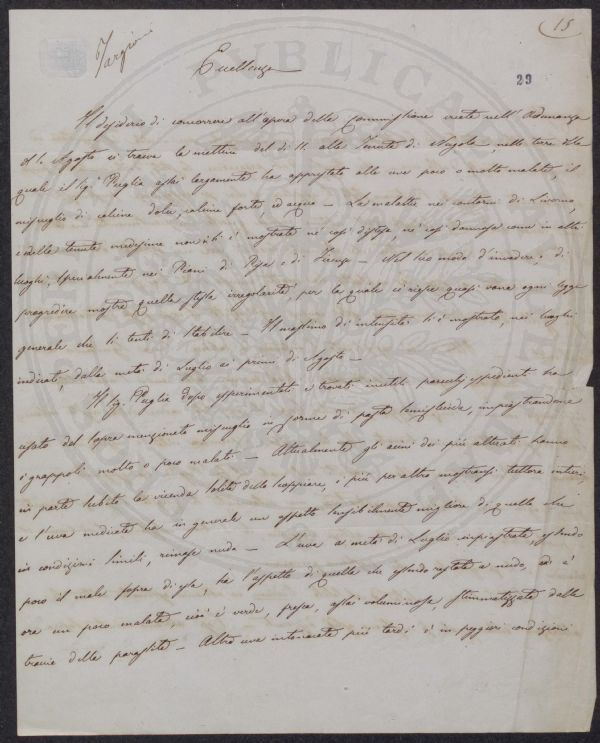 15
Targioni
29
Eccellenza
Il desiderio di concorrere all'opera della Commissione creata nell'Adunanza
del 4. Agosto ci traeva la mattina del dì 11. alla Tenuta di Nugola nelle terre della
quale il Sig. Puglia assai largamente ha apprestato alle uve poco o molto malate, il
miscuglio di calcina dolce, calcina forte, ed acqua — La malattia nei contorni di Livorno,
e della tenuta medesima non si è mostrata nè così diffusa, nè così dannosa come in altri
luoghi, specialmente nei Piani di Pisa e di Firenze — Nel suo modo d'invadere e di
progredire mostra quella stessa irregolarità per la quale ci riesce quasi vana ogni legge
generale che si tenti di stabilire — Il massimo di intensità si è mostrato, nei luoghi
indicati, dalla metà di Luglio ai primi di Agosto —
Il Sig. Puglia dopo sperimentati e trovati inutili parecchj espedienti ha
usato del sopra menzionato miscuglio in forma di pasta semifluida, impiastrandone
i grappoli molto o poco malati — Attualmente gli acini dei più alterati hanno
in parte subito la vicenda solita dello scoppiare, i più per altro mostransi tuttora intieri,
e l'uva medicata ha in generale un aspetto sensibilmente migliore di quella che
in condizioni simili, rimase nuda — L'uva a metà di Luglio impiastrata, essendo
poco il male sopra di essa, ha l'aspetto di quella che essendo restata a nudo, ed è
ora un poco malata, cioè è verde, fresca, assai voluminosa, stimmatizzata dalle
traccie della parassita — Altra uva intonacata più tardi è in peggiori condizioni